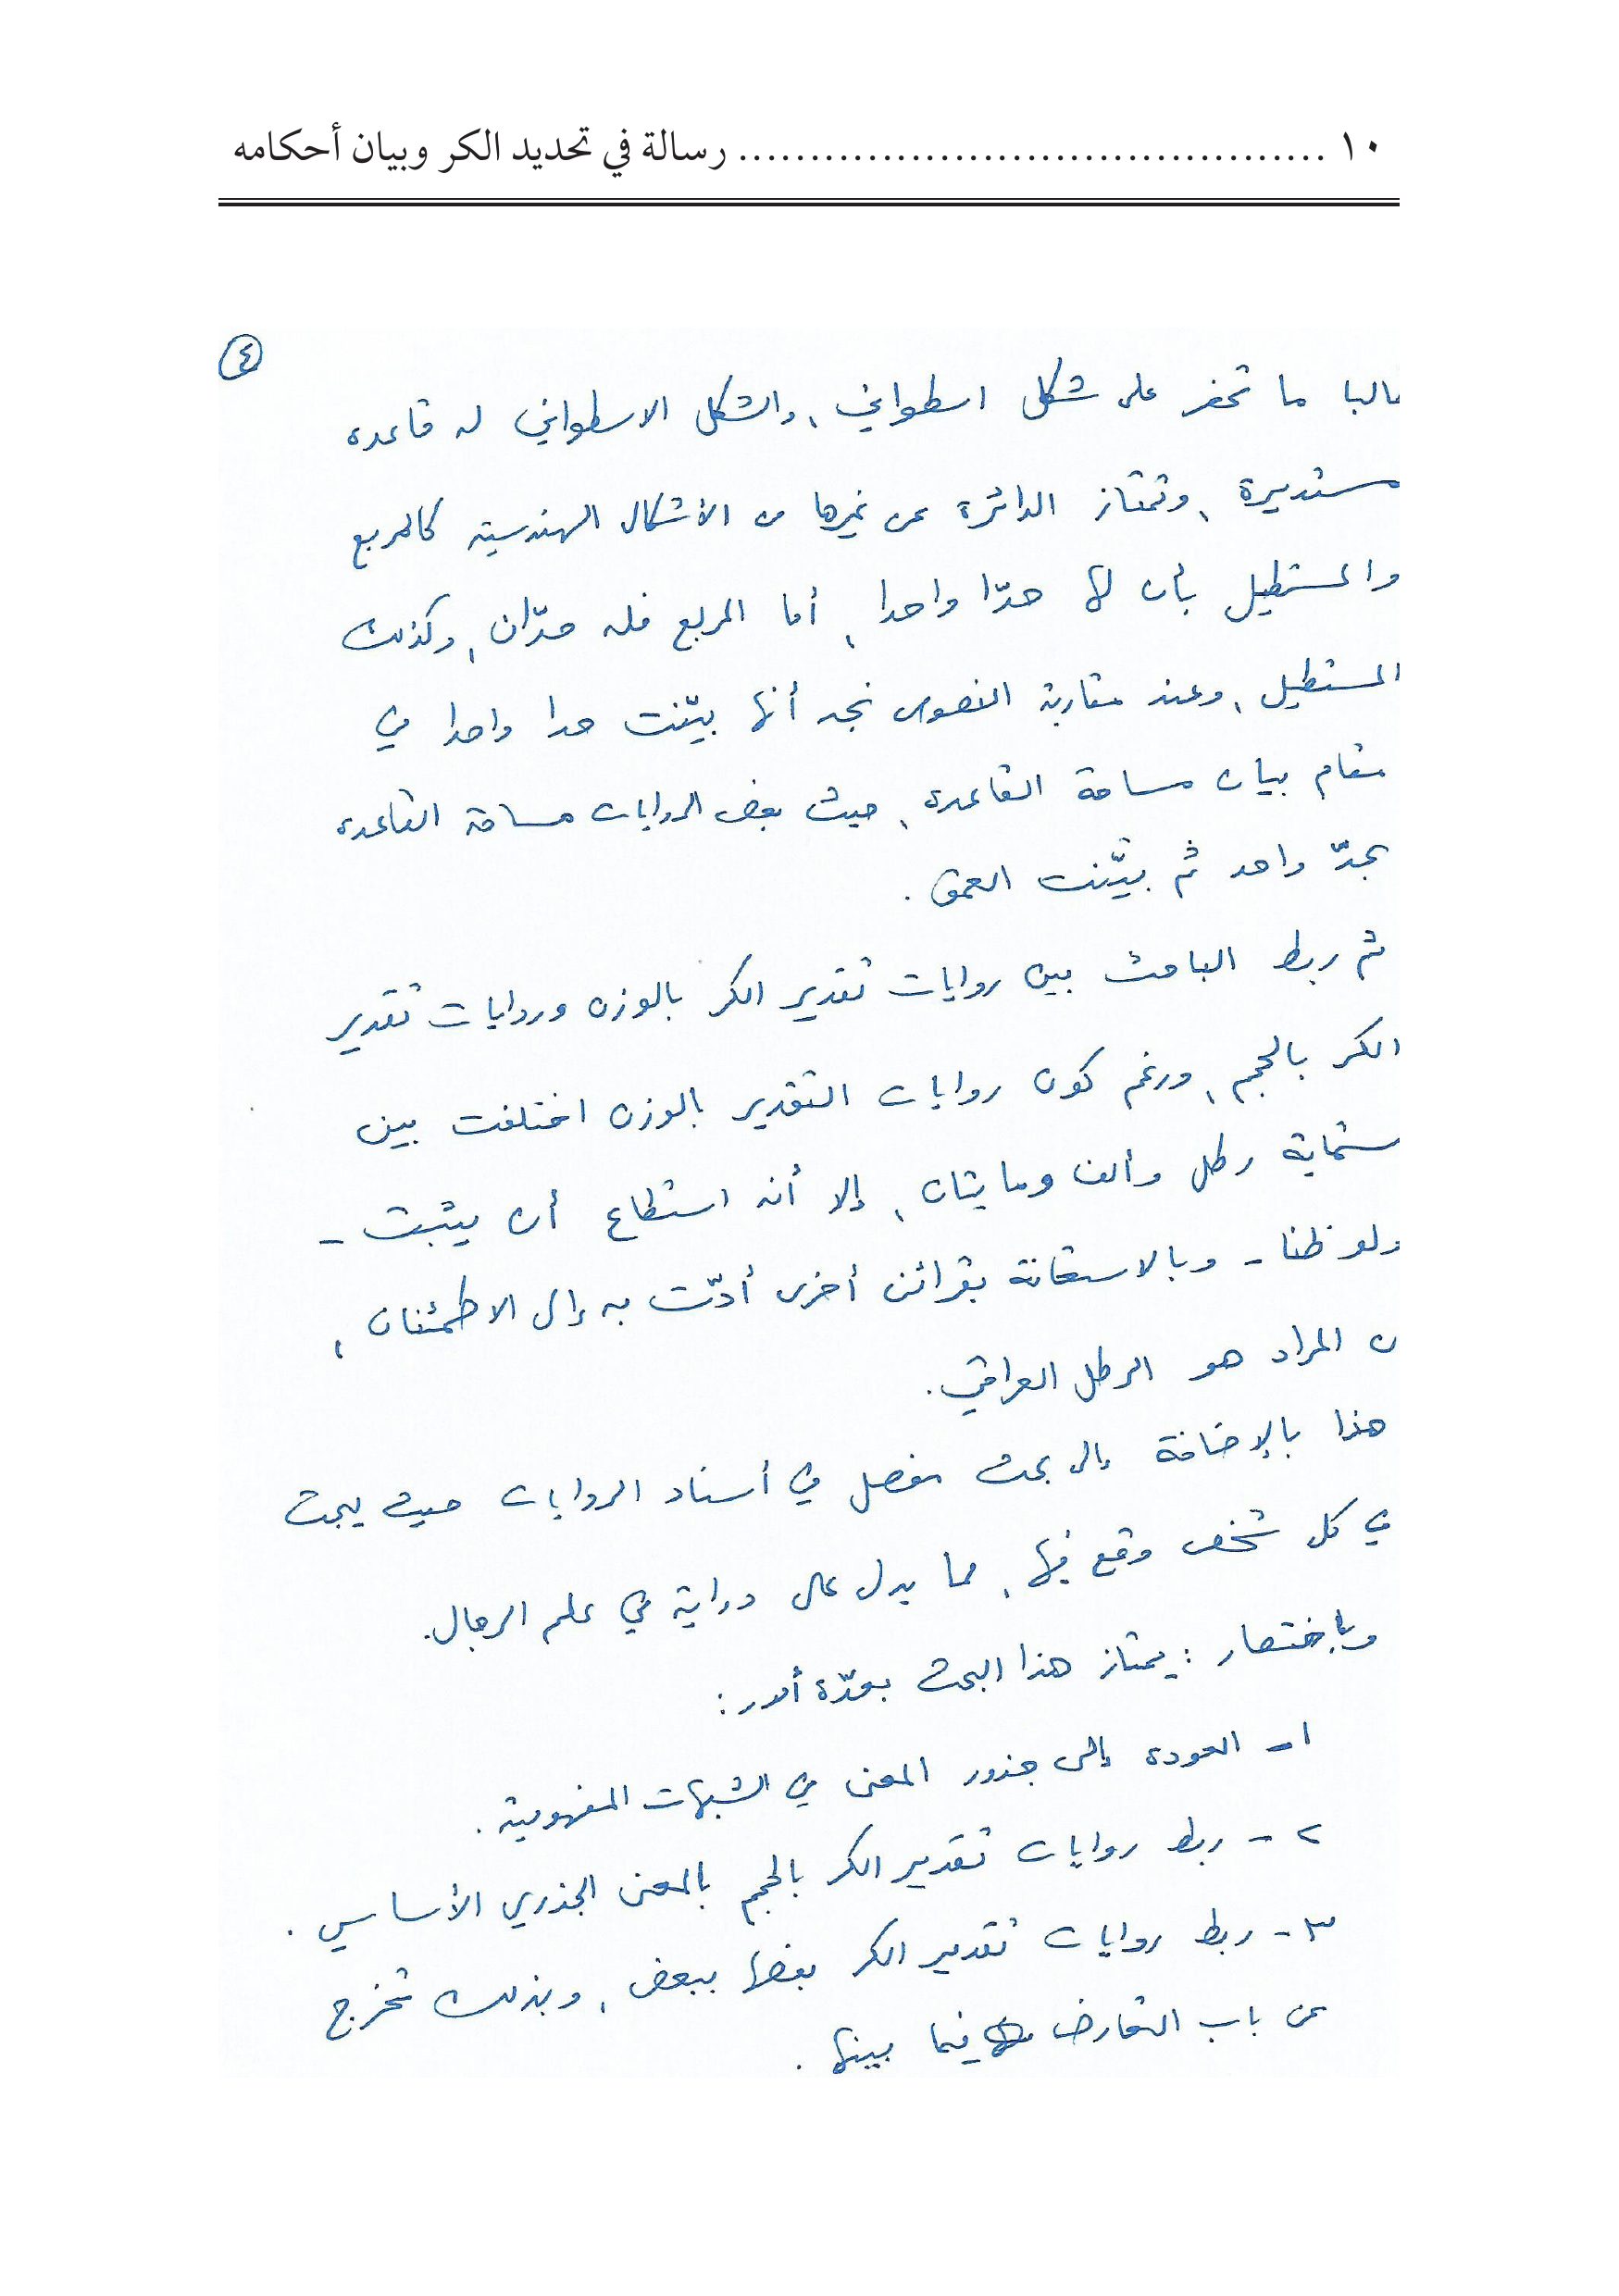 ١٠ ......................................... رسالة في تحديد الكر وبيان أحكامه
٤
غالبا ما تحفر على شكل اسطواني، والشكل الاسطواني له قاعدة
مستديرة، وتمتاز الدائرة عن غيرها من الأشكال الهندسية كالمربع
والمستطيل بأن لها حدّا واحدا، أما المربع فله حدّان، وكذلك
المستطيل، وعند مقاربة النصوص نجد أنها بيّنت حدا واحدا في
مقام بيان مساحة القاعدة، حيث بعض الروايات مساحة القاعدة
بحدّ واحد ثم بيّنت العمق.
ثم ربط الباحث بين روايات تقدير الكر بالوزن وروايات تقدير
الكر بالحجم، ورغم كون روايات التقدير بالوزن اختلفت بين
ستماية رطل وألف ومايتان، إلا أنه استطاع أن يثبت -
ولو ظنا - وبالاستعانة بقرائن أخرى أدّت به إلى الاطمئنان،
ن المراد هو الرطل العراقي.
هذا بالإضافة إلى بحث مفصل في أسناد الروايات حيث يبحث
في كل شخص وقع فيها، مما يدل على دراية في علم الرجال.
وبإختصار: يمتاز هذا البحث بعدّة أمور:
١- العودة إلى جذور المعنى في الشبهات المفهومية.
٢- ربط روايات تقدير الكر بالحجم بالمعنى الجذري الأساسي.
٣- ربط روايات تقدير الكر بعضها ببعض، وبذلك تخرج
عن باب التعارض فيما بينها.